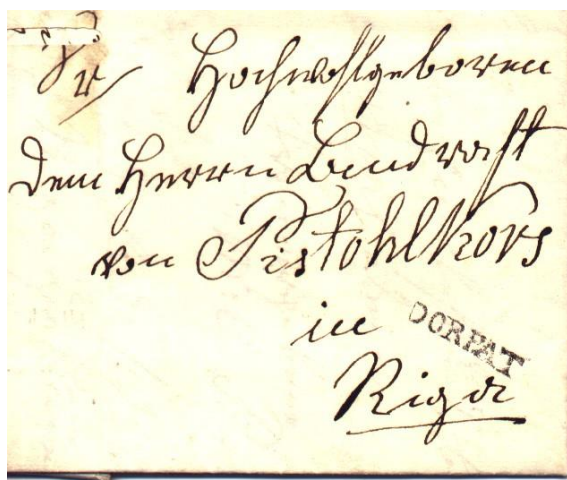 Sr Hochwohlgeboren
dem Herrn Landrath
von Pistohlkors
in
DORPAT
Riga